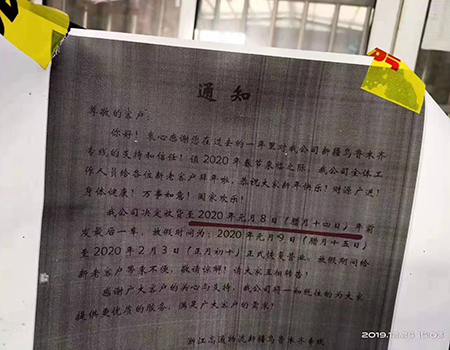 通知
尊敬的客户:
你好!衷心感谢您在过去的一年里对我公司新疆乌鲁木齐
专线的支持和信任!值2020年春节来临之际,我公司全体工
作人员给各位新老客户拜年啦,恭祝大家新年快乐!财源广进!
身体健康!万事如意!阖家欢乐!
我公司决定收货至2020年元月8日(腊月十四日)年前
发最后一车,放假时间为:2020年元月9日(腊月十五日)
至2020年2月3日(正月初十)正式恢复营业,放假期间给
新老客户带来不便,敬请谅解!请大家互相转告!
感谢广大客户的关心与支持,我公司将一如既往的为大家
提供更优质的服务,满足广大客户的需求!
浙江高通物流新疆乌鲁木齐专线